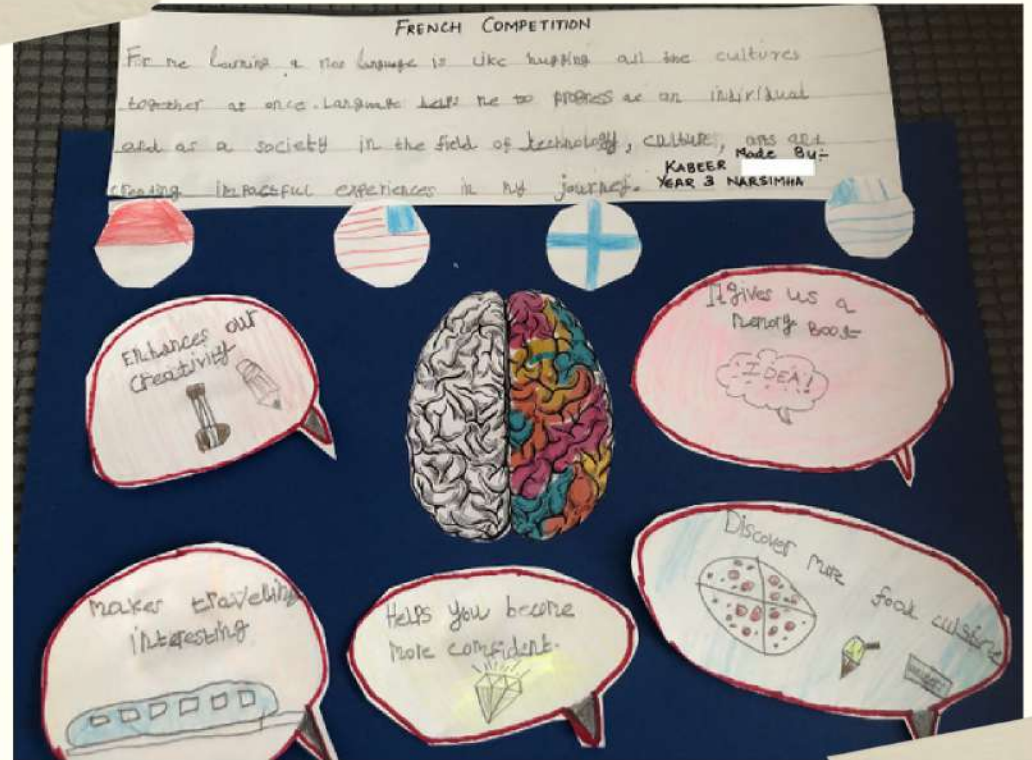 FRENCH COMPETITION
For me learning a new language is like hugging all the cultures
together at once. Language helps me to progress as an individual
and as a society in the field of technology, culture, arts and
creating impactful experiences in my journey.
Made By:-
KABEER
YEAR 3 NARSIMHA
Enhances our
Creativity
It gives us a
memory Boost
IDEA!
makes traveling
interesting
Helps you become
more confident.
Discover more food culture